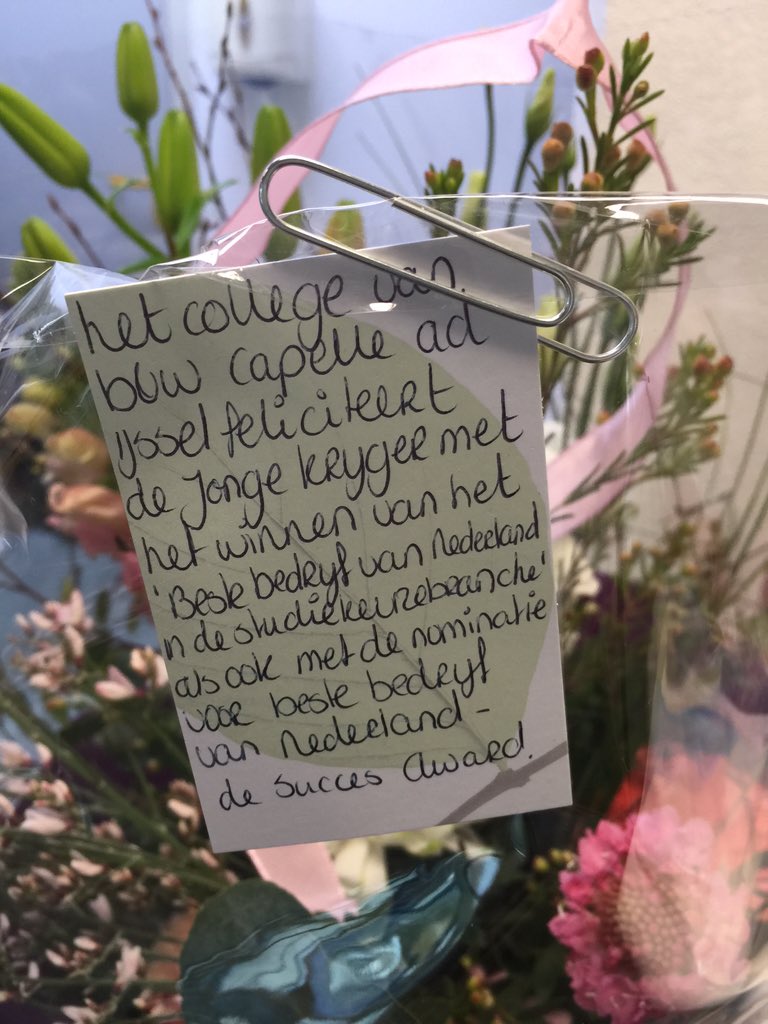 het college van
b&w capelle ad
ijssel feliciteert
de Jonge Krijger met
het winnen van het
'Beste bedrijf van Nederland
in de studiekeuzebranche'
als ook met de nominatie
voor beste bedrijf
van Nederland -
de Succes Award.